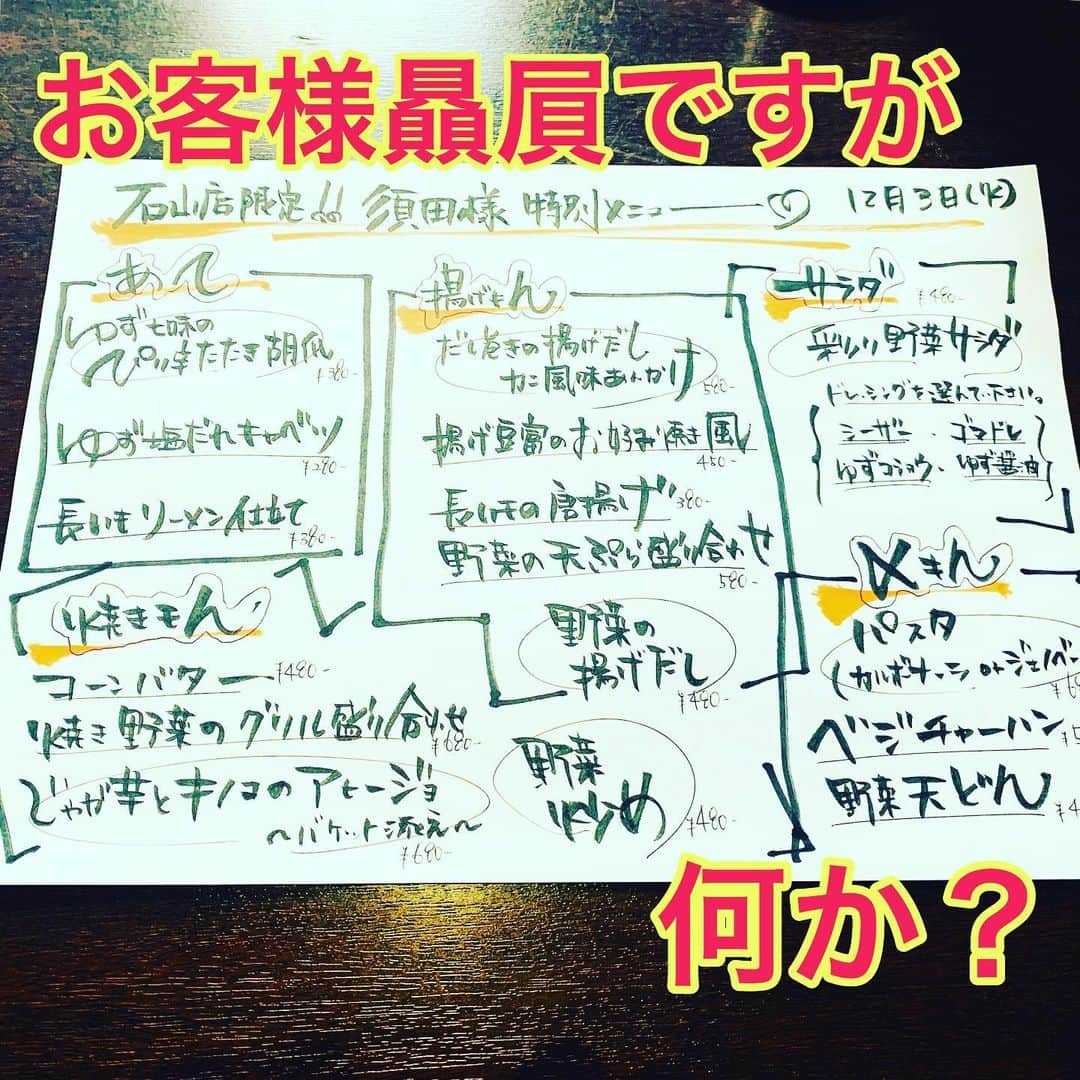 お客様贔屓ですが
石山店限定!! 須田様 特別メニュー♡ 12月3日(火)
あて
ゆず七味の
ピリ辛たたき胡瓜
¥380-
ゆず塩だれキャベツ
¥280-
長いもソーメン仕立て
¥380-
揚げもん
だし巻きの揚げだし
カニ風味あんかけ
580-
揚げ豆富のお好み焼き風
450-
長いもの唐揚げ 380-
野菜の天ぷら盛り合わせ
580-
野菜の
揚げだし
¥480-
サラダ
¥480-
彩り野菜サラダ
ドレッシングを選んで下さい。
シーザー・ゴマドレ
ゆずコショウ・ゆず醤油
焼きモん
コーンバター ¥480-
焼き野菜のグリル盛り合わせ
¥680-
じゃが芋とキノコのアヒージョ
〜バケット添え〜
¥680-
野菜
炒め
¥480-
〆もん
パスタ
(カルボナーラ orジェノベー
ベジチャーハン
野菜天どん
何か？